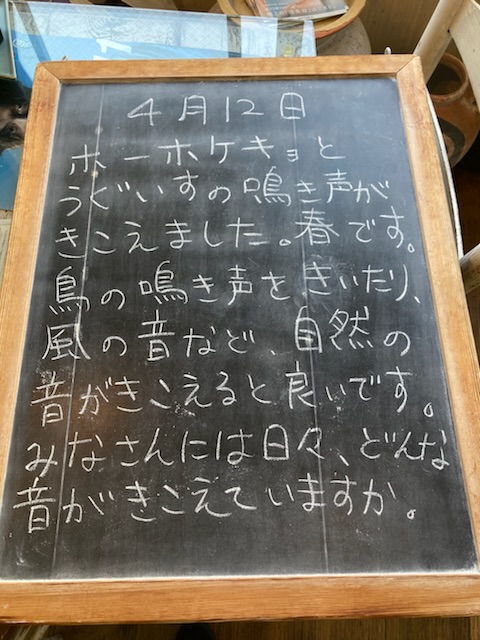 4月12日
ホーホケキョと
うぐいすの鳴き声が
きこえました。春です。
鳥の鳴き声をきいたり、
風の音など、自然の
音がきこえると良いです。
みなさんには日々、どんな
音がきこえていますか。